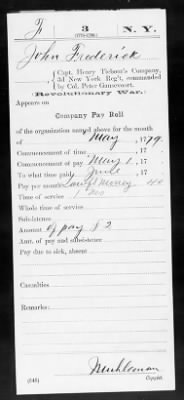 F 3 N. Y.
(775–1783.)
John Frederick
Capt. Henry Tiebout's Company,
3d New York Reg't, commanded
by Col. Peter Gansevoort.
Revolutionary War.
Appears on
Company Pay Roll
of the organization named above for the month
of May, 1779.
Commencement of time, 17
Commencement of pay May 1, 17
To what time paid June, 17
Pay per month
Time of service 1 mo
Whole time of service
Subsistence
Amount of pay $ 2
Amt. of pay and subsistence
Pay due to sick, absent
Casualties
Remarks:
(546) Copyist.